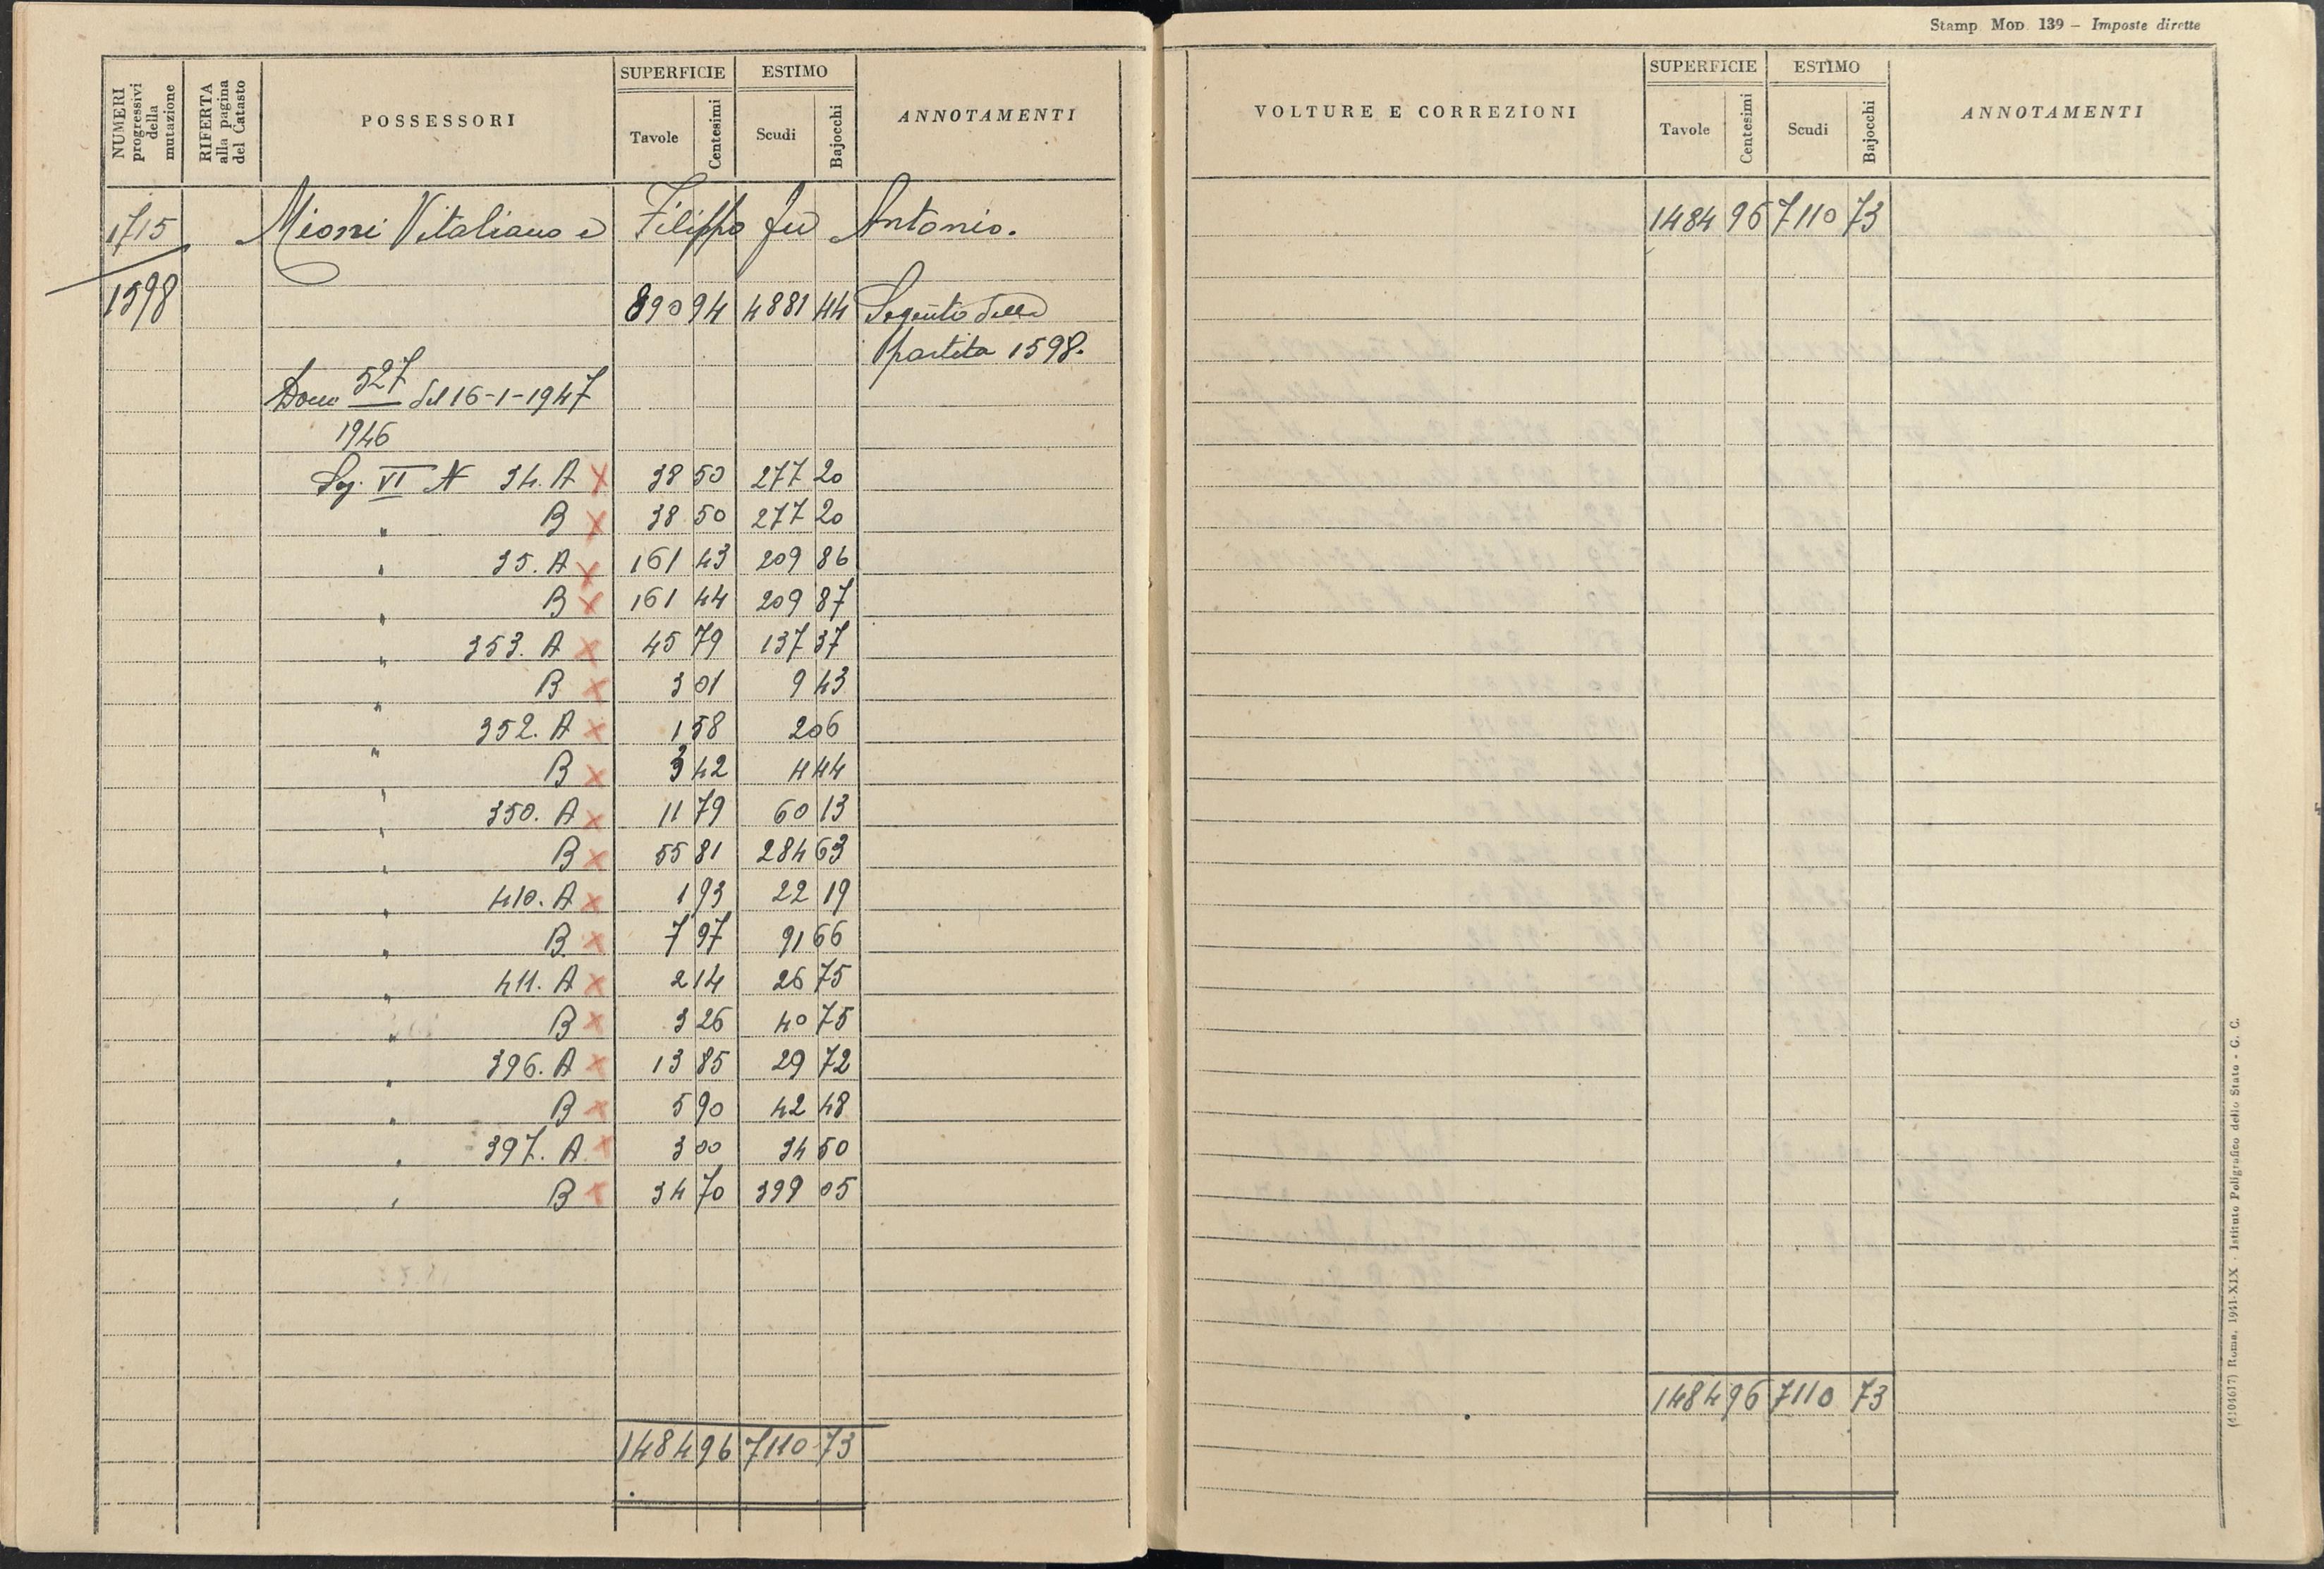 Stamp Mod 139 – Imposte dirette
NUMERI progressivi della mutazione
RIFERTA alla pagina del Catasto
POSSESSORI
SUPERFICIE
Tavole
Centesimi
ESTIMO
Scudi
Bajocchi
ANNOTAMENTI
1715 Mioni Vitaliano e Filippo fu Antonio.
1598 890 94 4881 44 Seguito della
partita 1598.
Dom 527 del 16-1-1947
1946
Sez. VI N 34. A X 38 50 277 20
" B X 38 50 277 20
" 35. A X 161 43 209 86
" B X 161 44 209 87
" 353. A X 45 79 137 37
" B X 3 01 9 43
" 352. A X 1 58 2 06
" B X 3 42 4 44
" 350. A X 11 79 60 13
" B X 55 81 284 63
" 410. A X 1 93 22 19
" B X 7 97 91 66
" 411. A X 2 14 26 75
" B X 3 26 40 75
" 396. A X 13 85 29 72
" B X 5 90 42 48
" 397. A X 3 00 34 50
" B X 34 70 399 05
1484 96 7110 73
VOLTURE E CORREZIONI
SUPERFICIE
Tavole
Centesimi
ESTIMO
Scudi
Bajocchi
ANNOTAMENTI
1484 96 7110 73
1484 96 7110 73
(4104617) Roma, 1941-XIX - Istituto Poligrafico dello Stato - G. C.